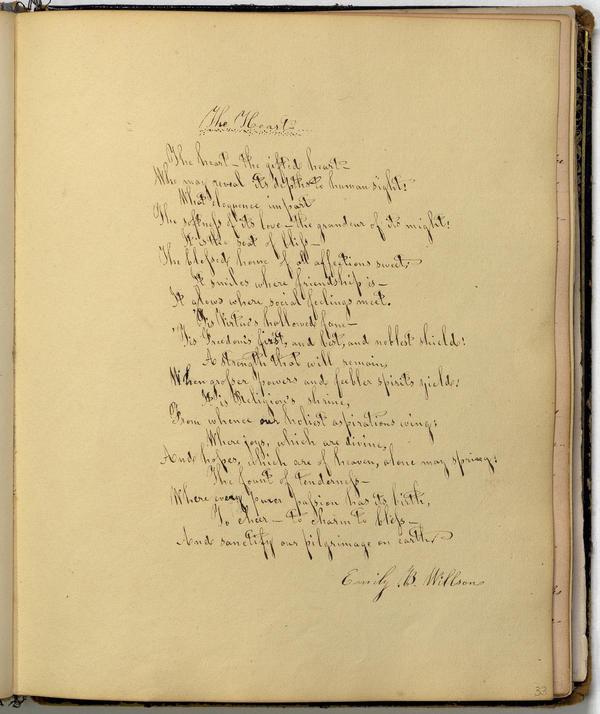 The Heart
The heart – the gifted heart –
Who may reveal its depths to human sight!
What eloquence impart
The softness of its love – the grandeur of its might!
It is the seat of bliss –
The blessed home of all affections sweet;
It smiles where friendship is –
It glows where social feelings meet.
'Tis Virtue's hallowed fane –
'Tis Freedom's first, and best, and noblest shield!
A strength that will remain,
When grosser powers and feebler spirits yield!
It is Religion's shrine,
From whence our holiest aspirations wing;
Where joys, which are divine,
And hopes, which are of heaven, alone may spring:
The fount of tenderness –
Where every purer passion has its birth,
To cheer – to charm to bless –
And sanctify our pilgrimage on earth.
Emily B. Willson
33